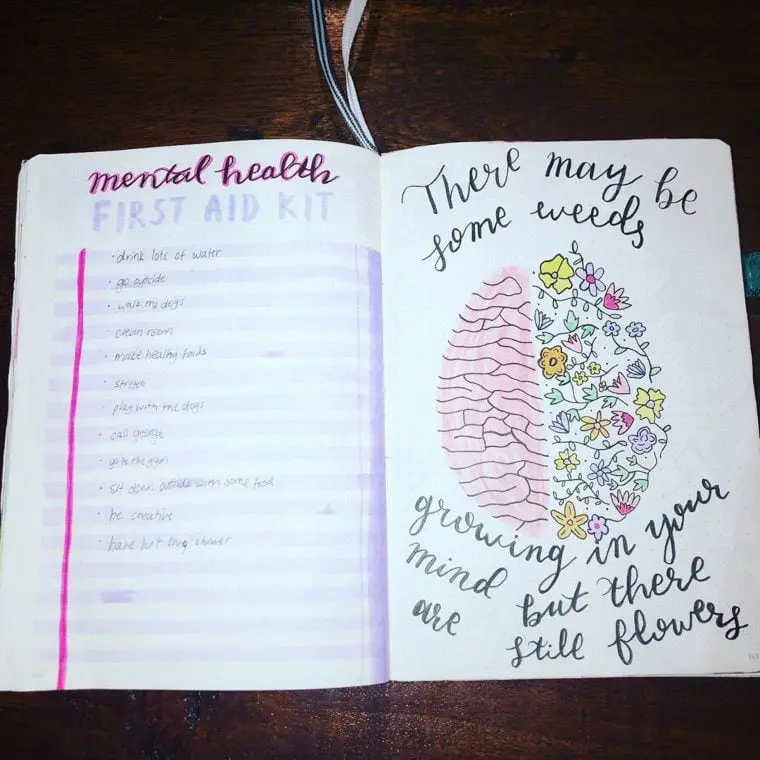 mental health
FIRST AID KIT
· drink lots of water
· go outside
· walk the dogs
· clean room
· make healthy foods
· stretch
· play with the dogs
· call george
· go to the gym
· sit down outside with some food
· be creative
· have hot long shower
There may be
some weeds
growing in your
mind but there
are still flowers